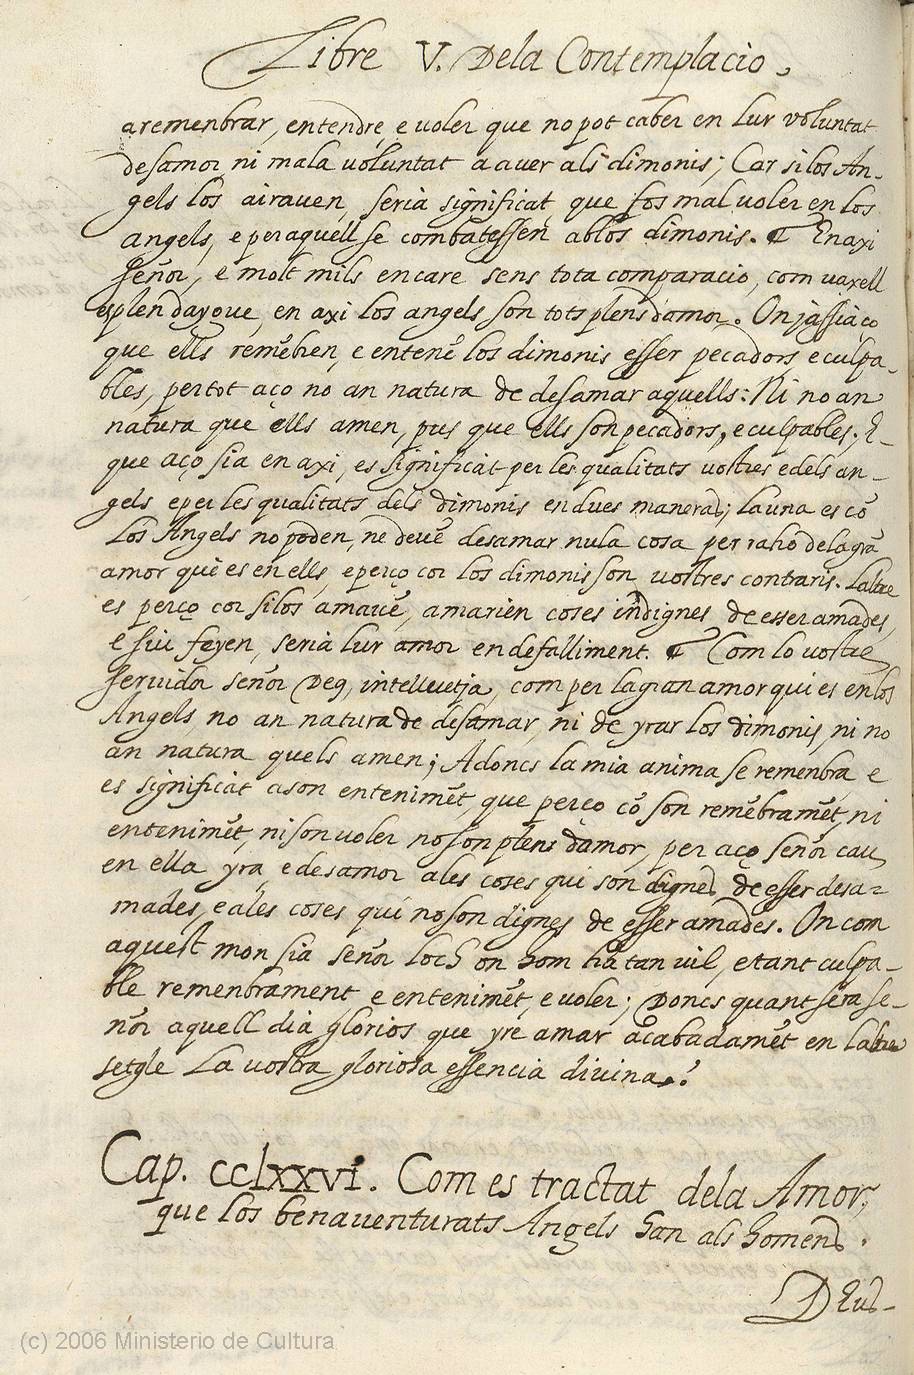 Libre V. Dela Contemplacio,
aremenbrar, entendre, e voler que no pot caber en lur voluntat
desamor, ni mala voluntat a aver als dimonis; Car si los An-
gels los airaven, seria significat, que fos mal voler en los
angels, e per aquell se combatessen ablos dimonis. ¶ En axi
señor, e molt mils encare sens tota comparacio, com vaxell
es plen daygue, en axi los angels son tots plens damor. On jassiaço
que ells remēbren, e entenē los dimonis esser pecadors, e culpa-
bles, per tot aço no an natura de desamar aquells: Ni no an
natura que ells amen, pus que ells son pecadors, e culpables. E
que aço sia en axi, es significat per les qualitats vostres e dels an-
gels e per les qualitats dels dimonis en dues maneres; la una es cō
los Angels no poden, ne devē desamar nula cosa per raho dela grā
amor qui es en ells, e perço cor los dimonis son vostres contraris. Laltre
es perço cor si los amavē, amarien coses indignes de esser amades,
e si u feyen, seria lur amor en defalliment. ¶ Com lo vostre
servidor señor Deq, intellevetja, com per la gran amor qui es en los
Angels, no an natura de desamar, ni de yrar los dimonis, ni no
an natura quels amen; Adoncs la mia anima se remenbra, e
es significat a son entenimēt, que perço cō son remēbramēt, ni
entenimēt, ni son voler no son plens damor, per aço señor cau
en ella yra, e desamor a les coses qui son dignes de esser desa=
mades, e ales coses qui no son dignes de esser amades. On com
aquest mon sia señor loch on hom ha tan vil, e tant culpa-
ble remenbrament e entenimēt, e voler; Doncs quant sera se-
ñor aquell dia glorios que yre amar acabadamēt en laltre
setgle La vostra gloriosa essencia divina.?
Cap. cclxxvi. Com es tractat dela Amor,
que los benaventurats Angels han als homens.
DEus-
(c) 2006 Ministerio de Cultura